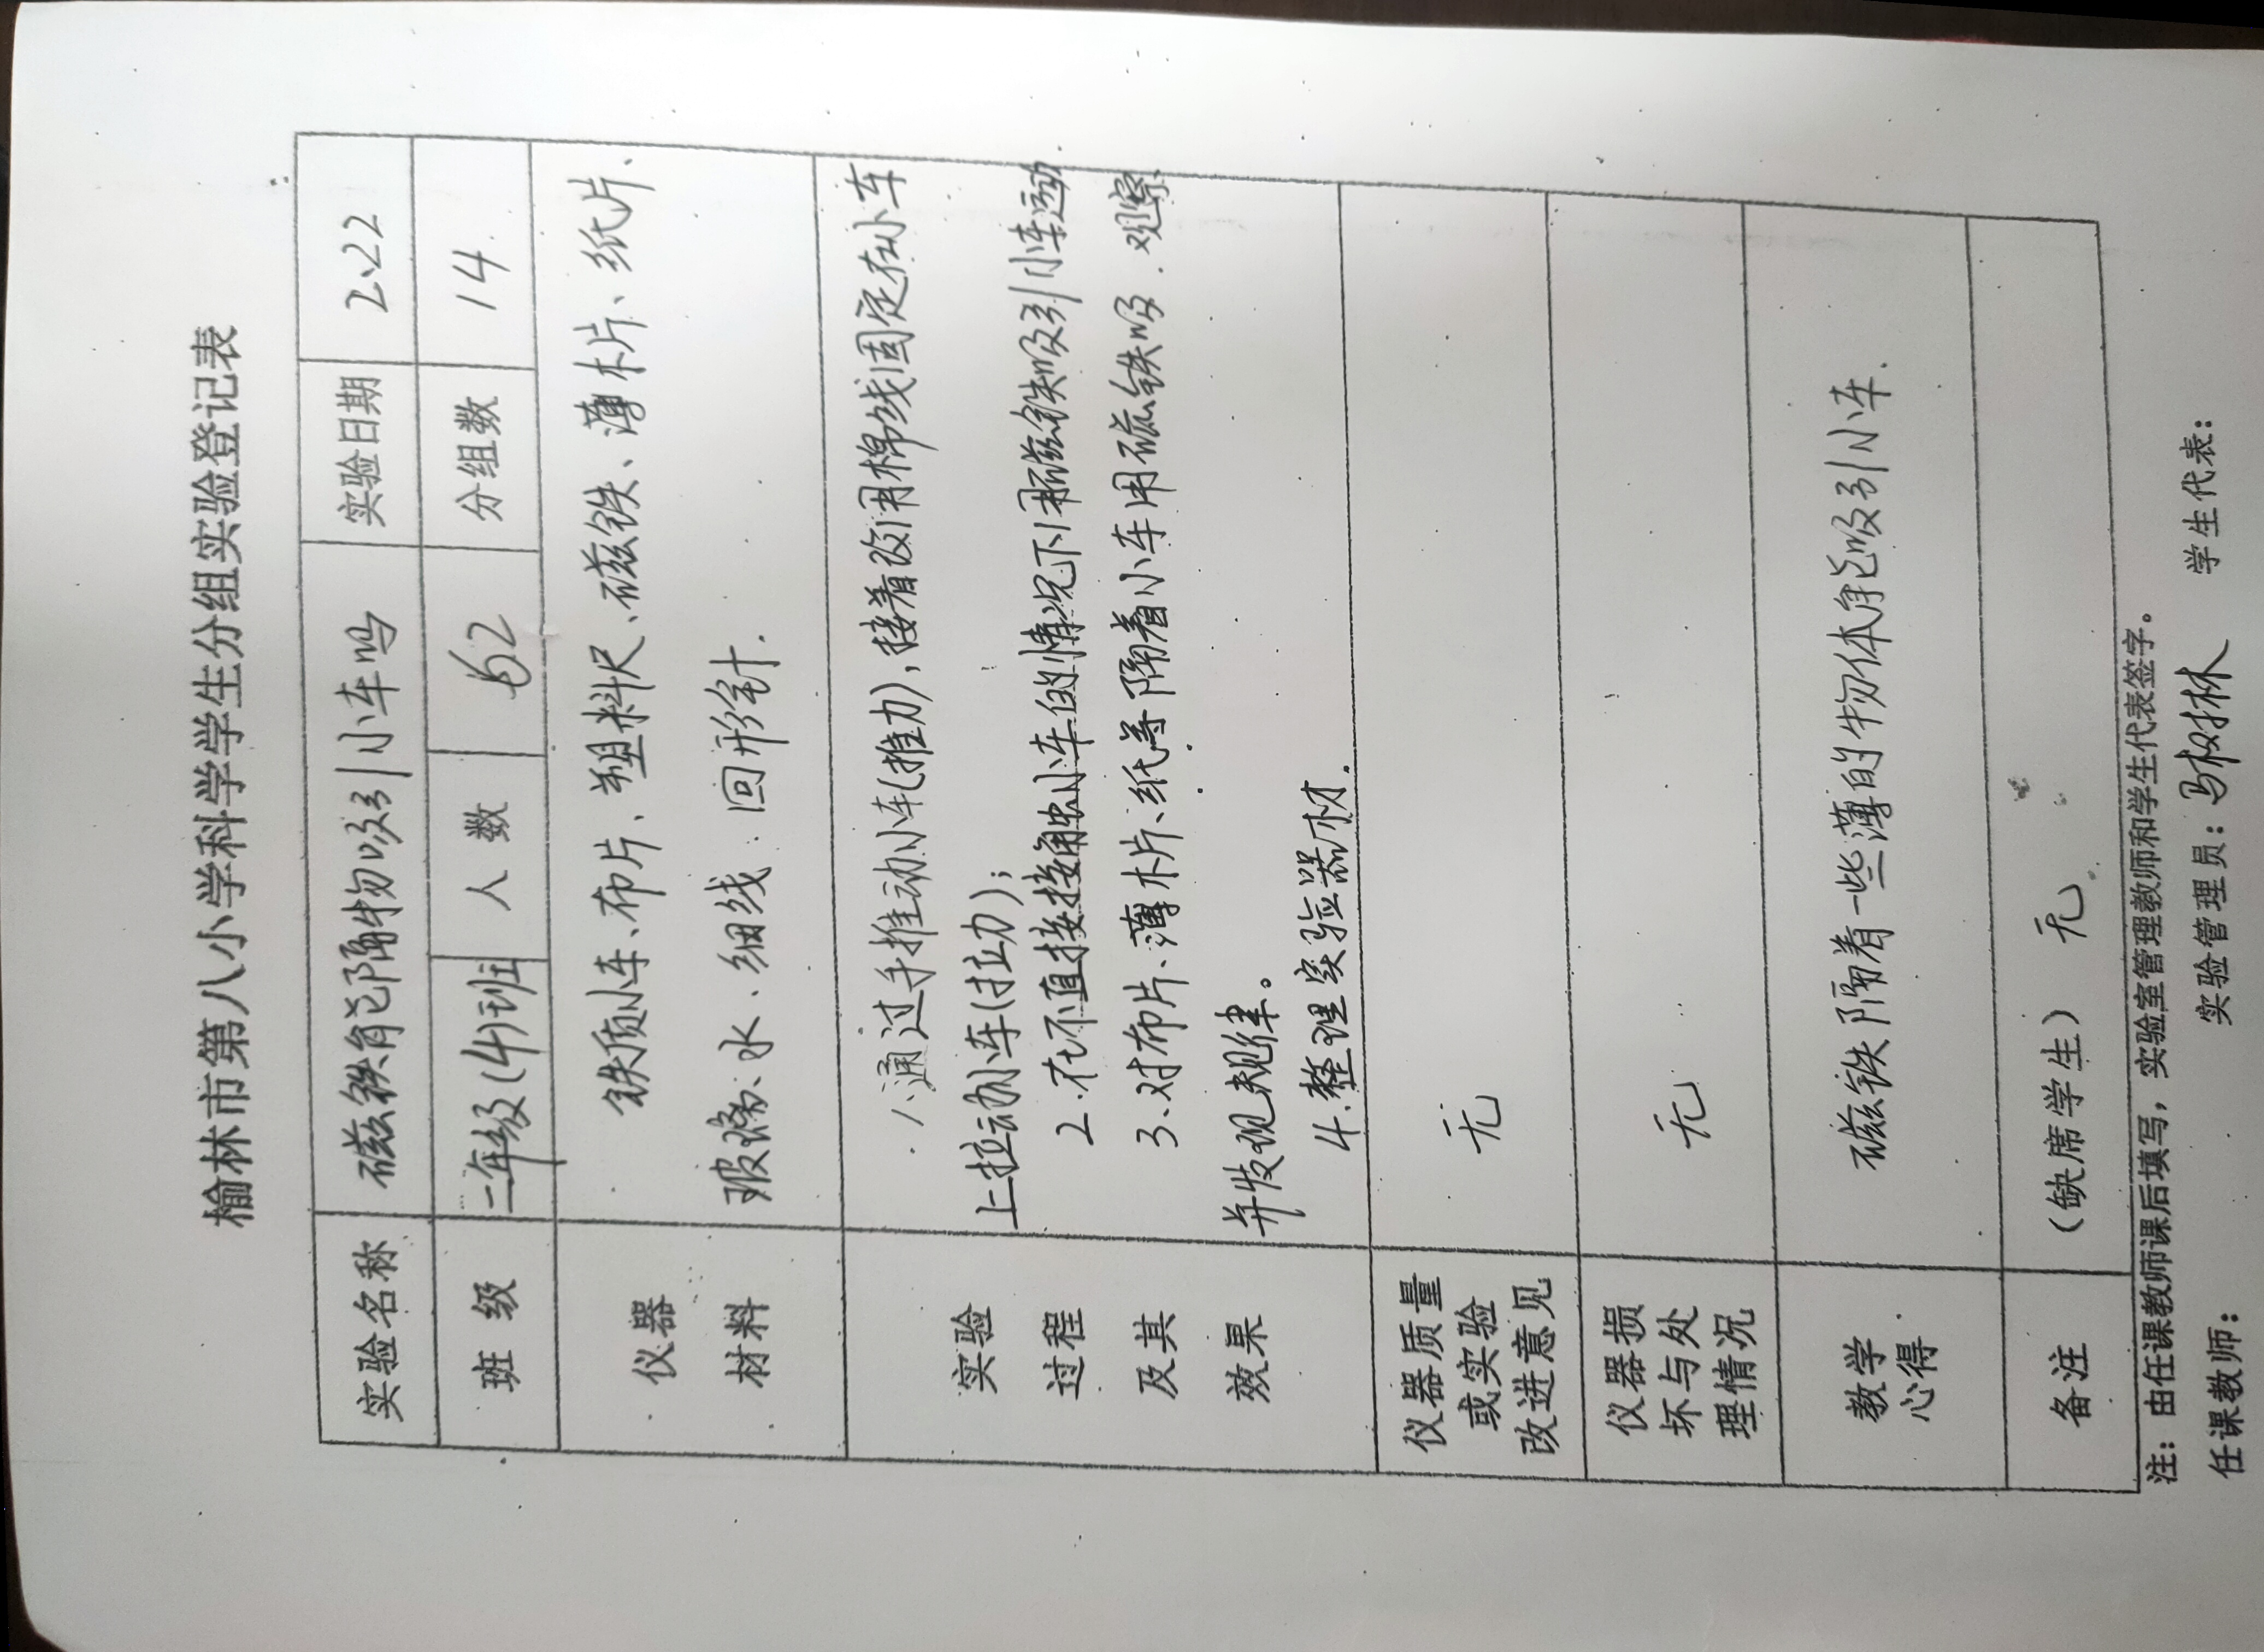 榆林市第八小学科学学生分组实验登记表
实验名称 磁铁能隔物吸引小车吗 实验日期 2.22
班 级 二年级(4)班 人 数 52 分组数 14
仪器
材料
铁质小车、布片、塑料尺、磁铁、薄木片、纸片、
玻璃、水、细线、回形针.
实验
过程
及其
效果
1.通过手推动小车(推力),接着改用棉线固定在小车
上拉动小车(拉力);
2.在不直接接触小车的情况下用磁铁吸引小车运动.
3.对布片、薄木片、纸等隔着小车用磁铁吸.观察
并发现规律。
4.整理实验器材.
仪器质量
或实验
改进意见
无
仪器损
坏与处
理情况
无
教学
心得
磁铁隔着一些薄的物体能吸引小车.
备注 (缺席学生) 无
注：由任课教师课后填写，实验室管理教师和学生代表签字。
任课教师： 实验管理员：马树林 学生代表：